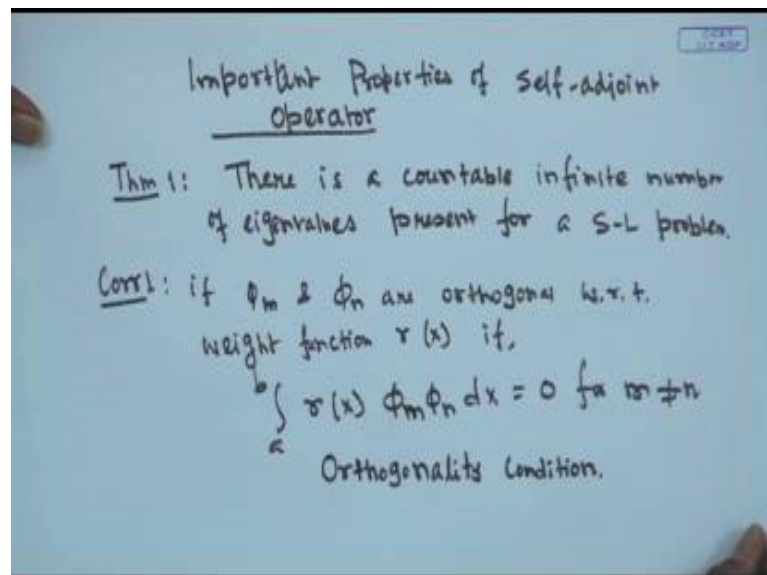 Important Properties of self-adjoint
operator
Thm 1: There is a countable infinite number
of eigenvalues present for a S-L problem.
Corr1: if φm & φn are orthogonal w.r.t.
weight function r(x) if,
∫ₐᵇ r(x) φm φn dx = 0 for m ≠ n
Orthogonality Condition.